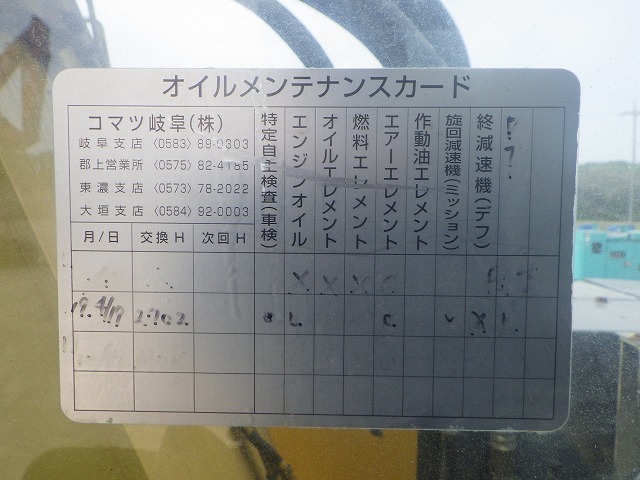 オイルメンテナンスカード
コマツ岐阜(株)
岐阜支店 〈0583〉89-0303
郡上営業所 〈0575〉82-4185
東濃支店 〈0573〉78-2022
大垣支店 〈0584〉92-0003
月/日 交換H 次回H
特定自主検査(車検)
エンジンオイル
オイルエレメント
燃料エレメント
エアーエレメント
作動油エレメント
旋回減速機(ミッション)
終減速機(デフ)
X X X C
17. 4/17 2702 L C X